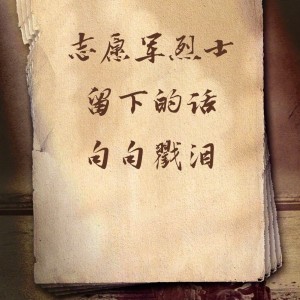 志愿军烈士
留下的话
句句戳泪